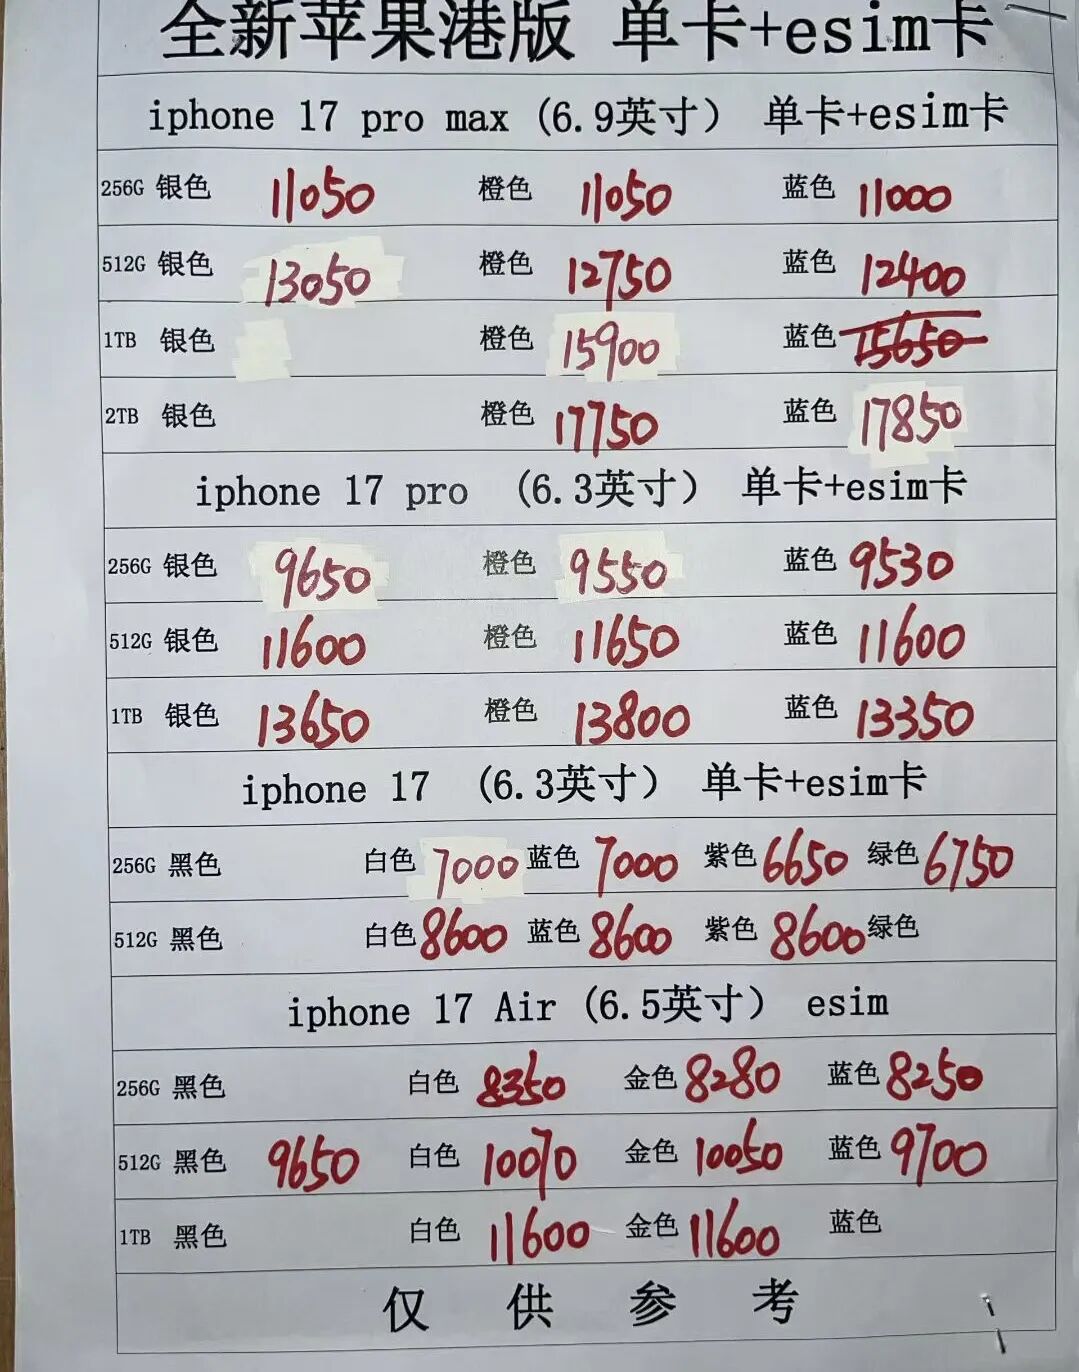 全新苹果港版 单卡+esim卡
iphone 17 pro max (6.9英寸) 单卡+esim卡
256G 银色 11050 橙色 11050 蓝色 11000
512G 银色 13050 橙色 12750 蓝色 12400
1TB 银色 橙色 15900 蓝色 15650
2TB 银色 橙色 17750 蓝色 17850
iphone 17 pro (6.3英寸) 单卡+esim卡
256G 银色 9650 橙色 9550 蓝色 9530
512G 银色 11600 橙色 11650 蓝色 11600
1TB 银色 13650 橙色 13800 蓝色 13350
iphone 17 (6.3英寸) 单卡+esim卡
256G 黑色 白色 7000 蓝色 7000 紫色 6650 绿色 6750
512G 黑色 白色 8600 蓝色 8600 紫色 8600 绿色
iphone 17 Air (6.5英寸) esim
256G 黑色 白色 8350 金色 8280 蓝色 8250
512G 黑色 9650 白色 10070 金色 10050 蓝色 9700
1TB 黑色 白色 11600 金色 11600 蓝色
仅供参考